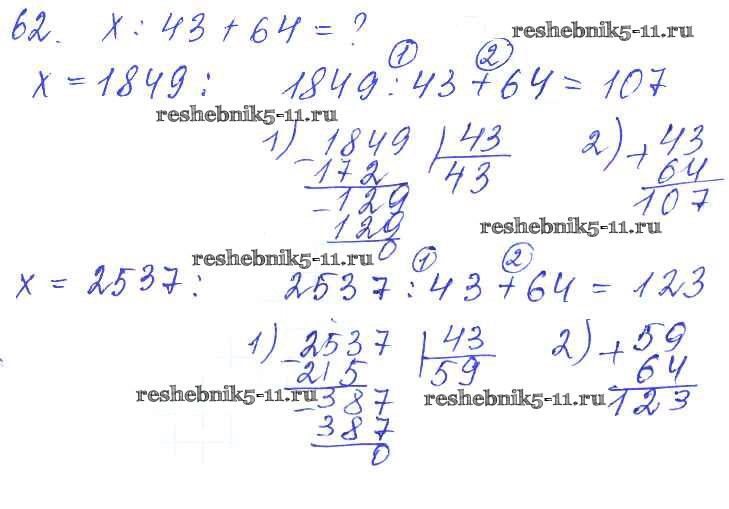 62. x : 43 + 64 = ? reshebnik5-11.ru
① ②
x = 1849 : 1849 : 43 + 64 = 107
reshebnik5-11.ru
1) 1849 | 43 2) + 43
- 172 43 64
- 129 107
129 reshebnik5-11.ru
0
reshebnik5-11.ru ① ②
x = 2537 : 2537 : 43 + 64 = 123
1) - 2537 | 43 2) + 59
215 59 64
reshebnik5-11.ru - 387 reshebnik5-11.ru 123
387
0